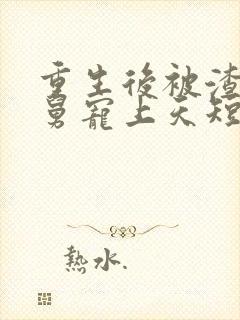 重生後被渣
舅寵上天短
熱水.